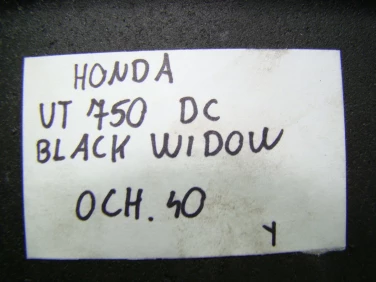 HONDA
VT 750 DC
BLACK WIDOW
OCH. 40
Y